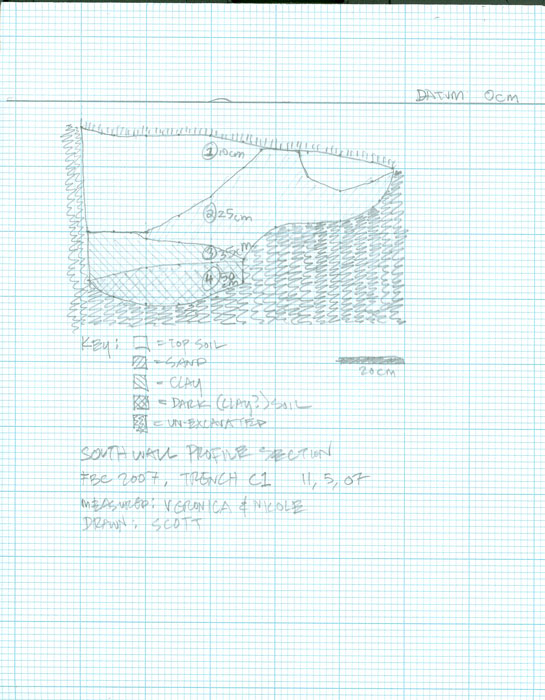 DATUM 0cm
① 10cm
② 25cm
③ 35cm
④
KEY: = TOP SOIL
= SAND
= CLAY
= DARK (CLAY?) SOIL
= UN-EXCAVATED
20cm
SOUTH WALL PROFILE SECTION
FBC 2007, TRENCH C1 11, 5, 07
MEASURED: VERONICA & NICOLE
DRAWN: SCOTT